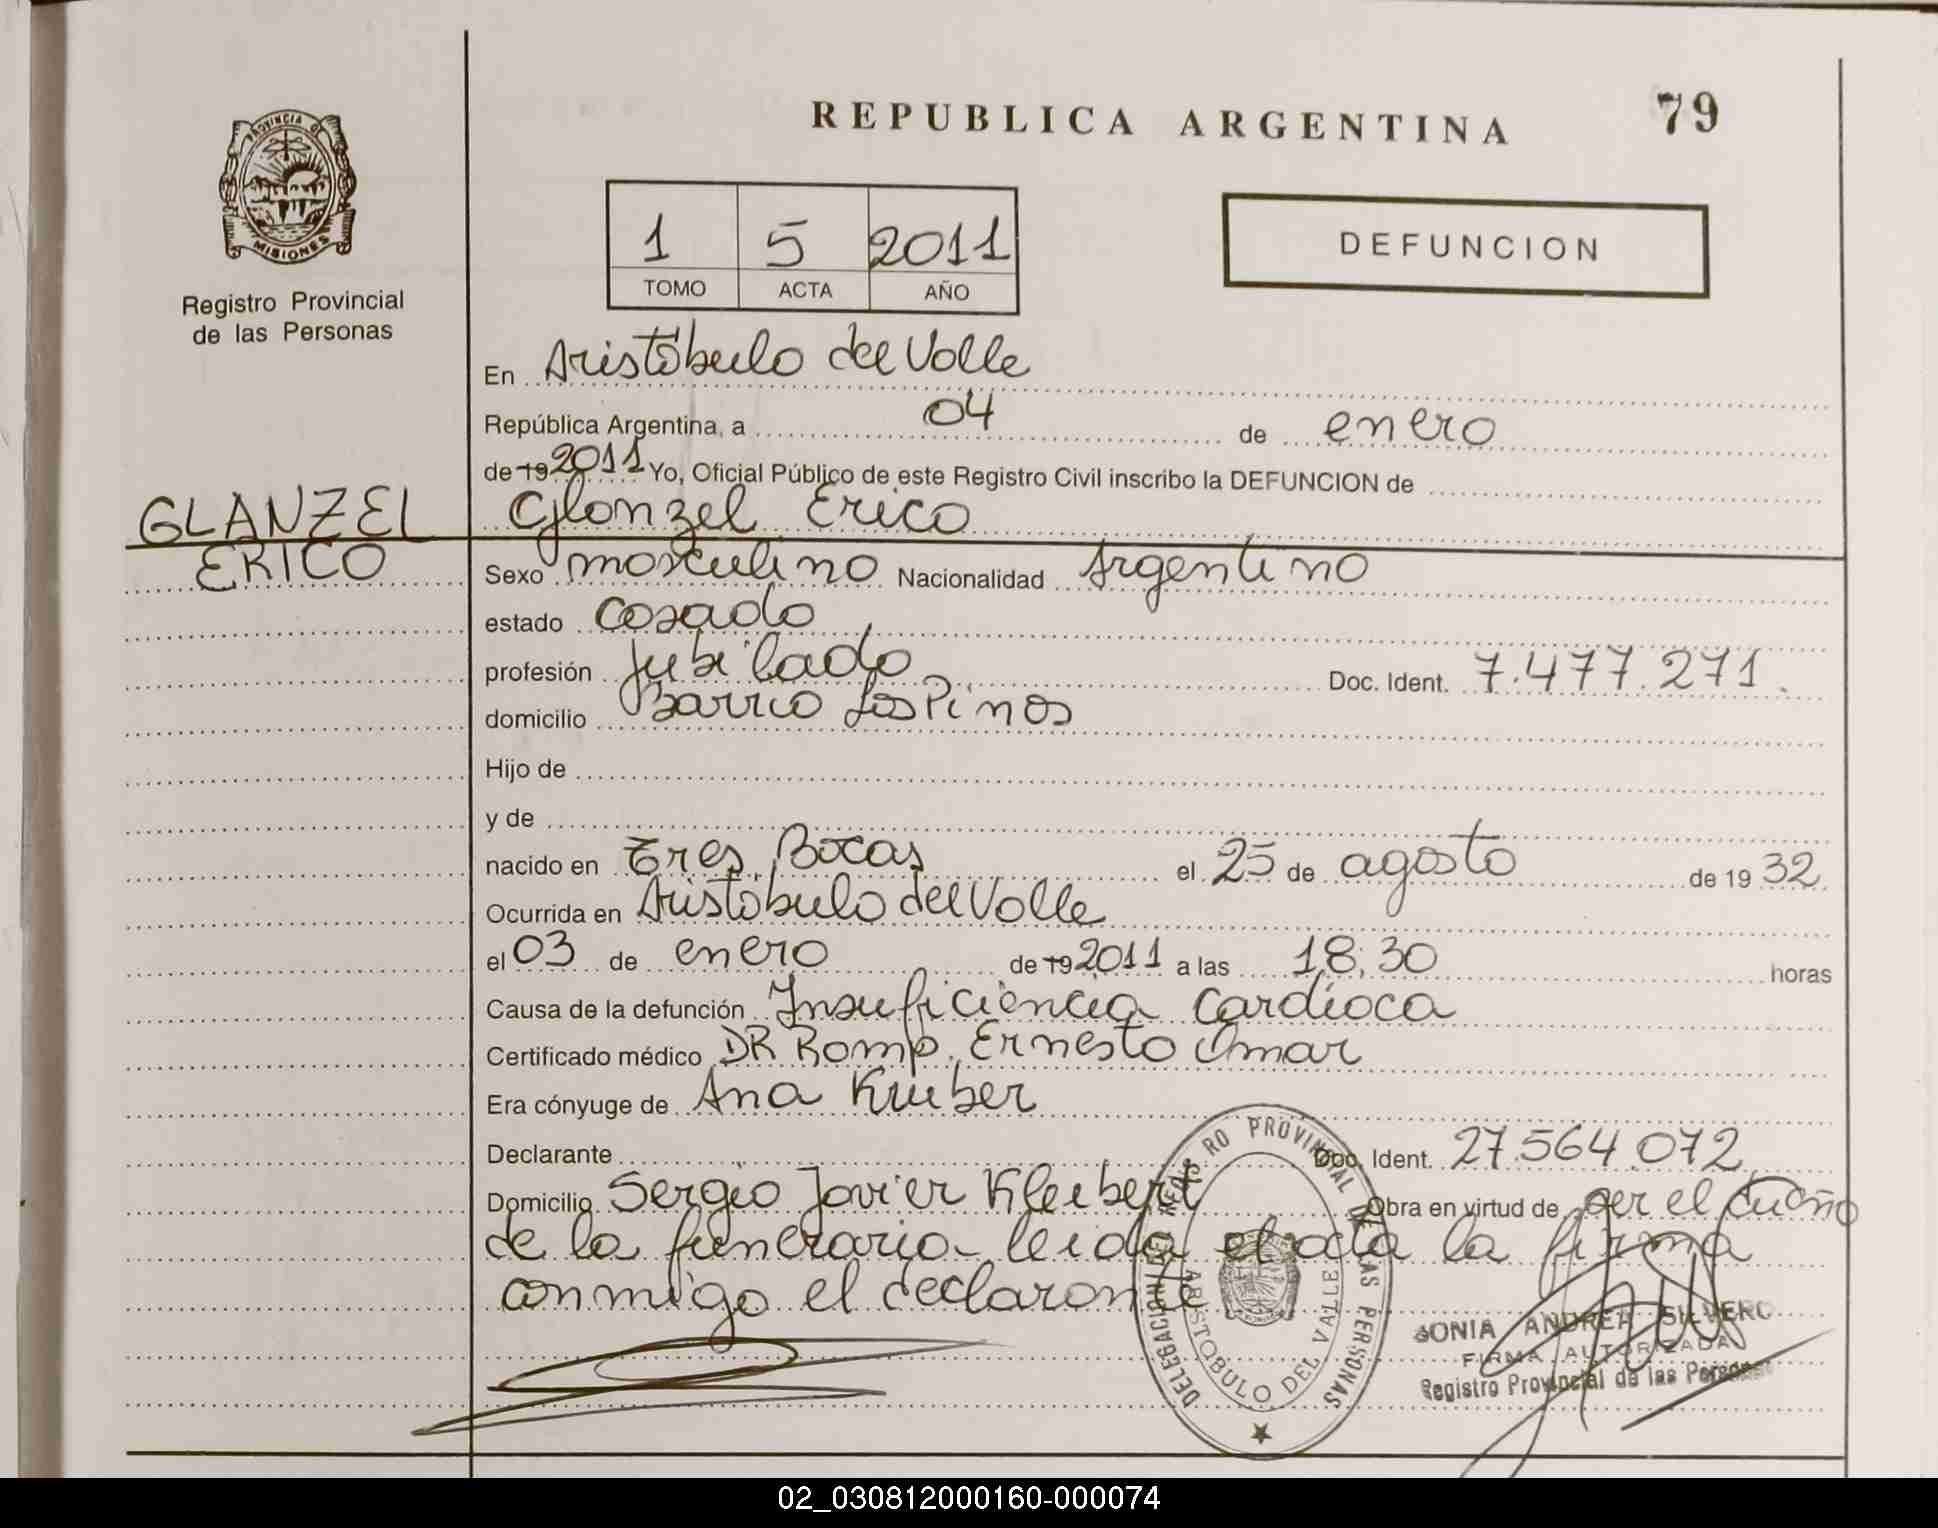 REPUBLICA ARGENTINA
79
PROVINCIA DE
MISIONES
Registro Provincial
de las Personas
1 5 2011
TOMO ACTA AÑO
DEFUNCION
En Aristóbulo del Valle
República Argentina, a 04 de enero
de 19 2011 Yo, Oficial Público de este Registro Civil inscribo la DEFUNCION de
GLANZEL
ERICO
Glanzel Erico
Sexo masculino Nacionalidad Argentino
estado Casado
profesión Jubilado Doc. Ident. 7.477.271.
domicilio Barrio Los Pinos
Hijo de
y de
nacido en Tres Bocas el 25 de agosto de 19 32
Ocurrida en Aristóbulo del Valle
el 03 de enero de 19 2011 a las 18:30 horas
Causa de la defunción Insuficiencia Cardíaca
Certificado médico DR Romp. Ernesto Omar
Era cónyuge de Ana
Declarante Doc. Ident. 27.564.072
Domicilio Sergio Javier Kleibert Obra en virtud de ser el dueño
de la funeraria leida el acta la firma
conmigo el declarante
DELEGACION DEL REGISTRO PROVINCIAL DE LAS PERSONAS
ARISTOBULO DEL VALLE
SONIA ANDREA SILVERO
FIRMA AUTORIZADA
Registro Provincial de las Personas
02_030812000160-000074